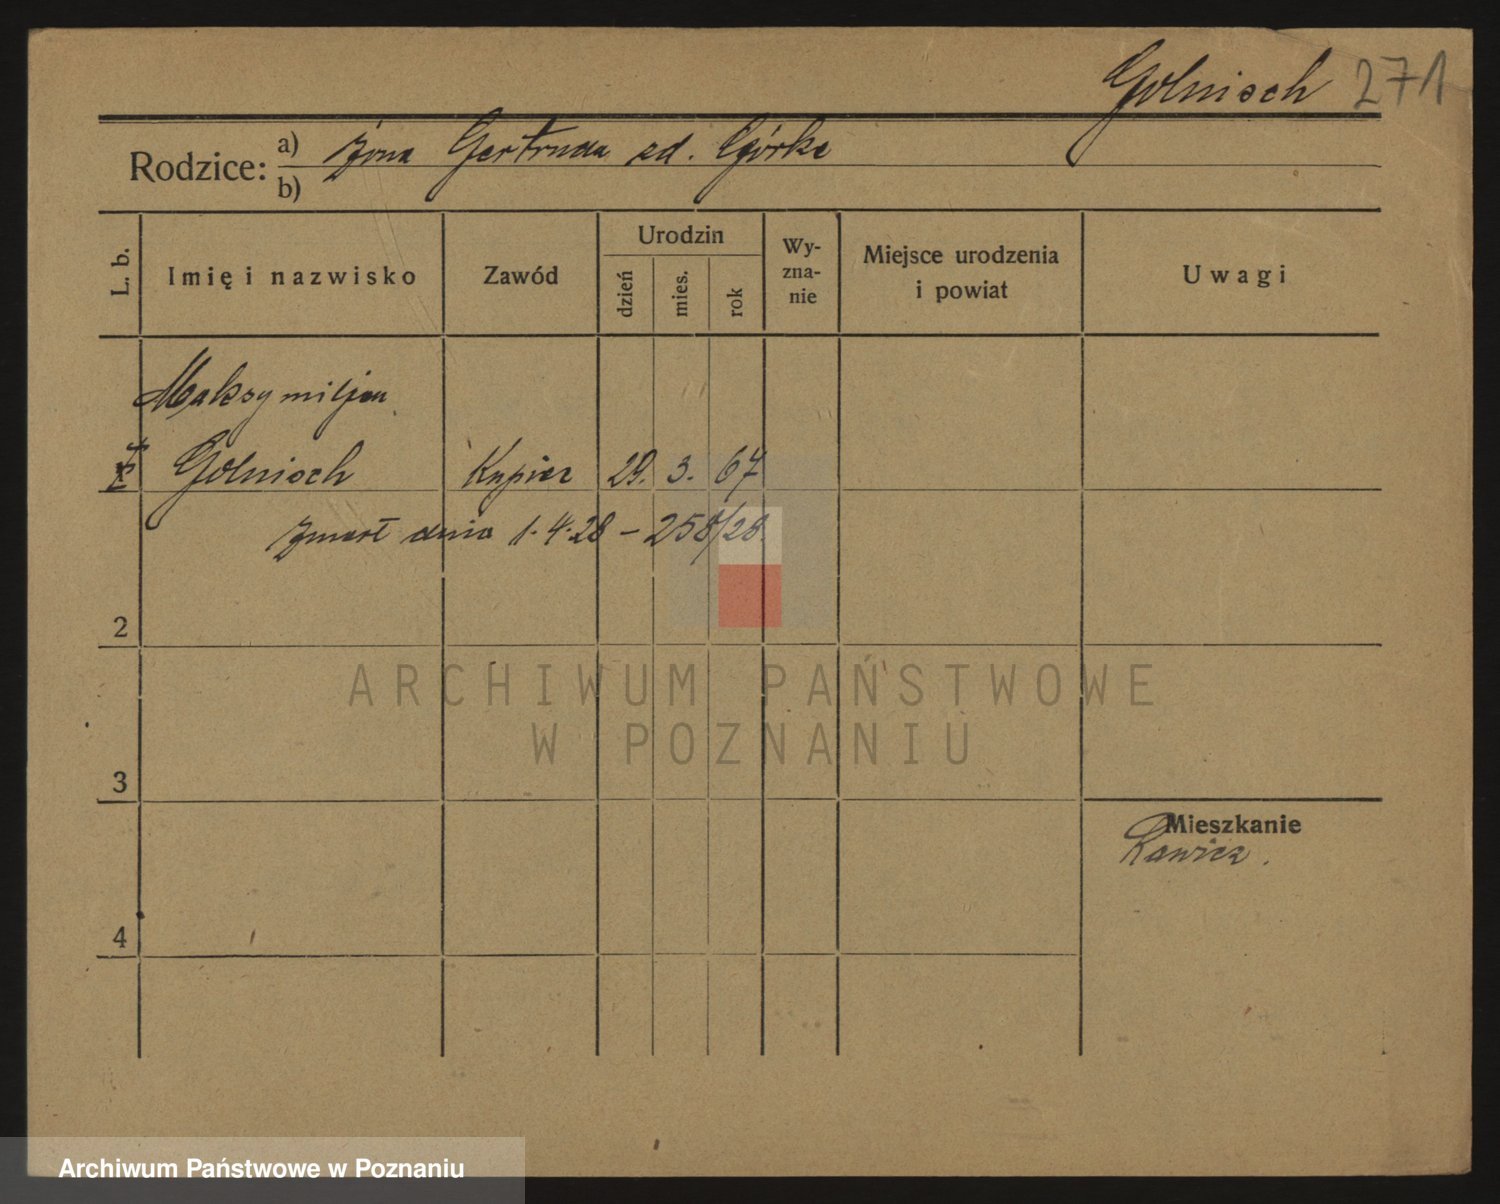 Golnisch 271
Rodzice: a) żona Gertruda zd. Górke
b)
L. b.
Imię i nazwisko
Zawód
Urodzin
dzień
mies.
rok
Wy-
zna-
nie
Miejsce urodzenia
i powiat
Uwagi
Maksymiljan
Golnisch Kupiec 29. 3. 67
zmarł dnia 1.4.28 – 258/28.
2
ARCHIWUM PAŃSTWOWE
W POZNANIU
3
Mieszkanie
Rawicz.
4
Archiwum Państwowe w Poznaniu